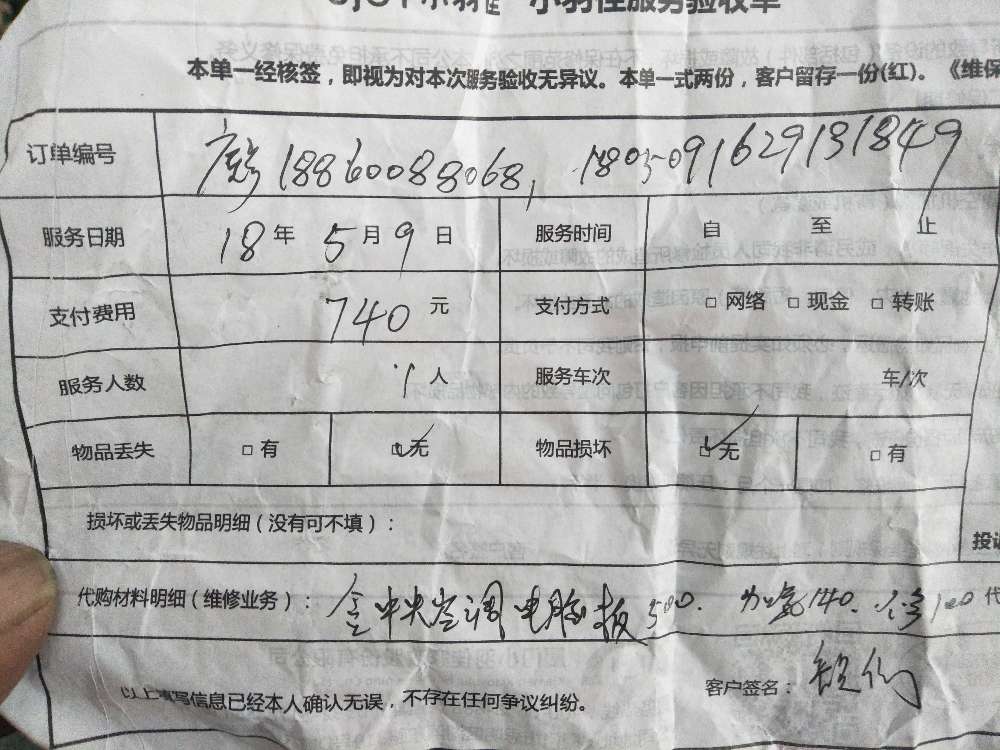 小羽佳服务验收单
本单一经核签，即视为对本次服务验收无异议。本单一式两份，客户留存一份(红)。《维保
订单编号 18860088068, 1805091629131849
服务日期 18年 5月9日 服务时间 自 至 止
支付费用 740元 支付方式 □网络 □现金 □转账
服务人数 1人 服务车次 车/次
物品丢失 □有 ☑无 物品损坏 ☑无 □有
损坏或丢失物品明细（没有可不填）：
投诉
代购材料明细（维修业务）： 中央空调电脑板500. 加氟140. 100 代
客户签名：
以上填写信息已经本人确认无误，不存在任何争议纠纷。